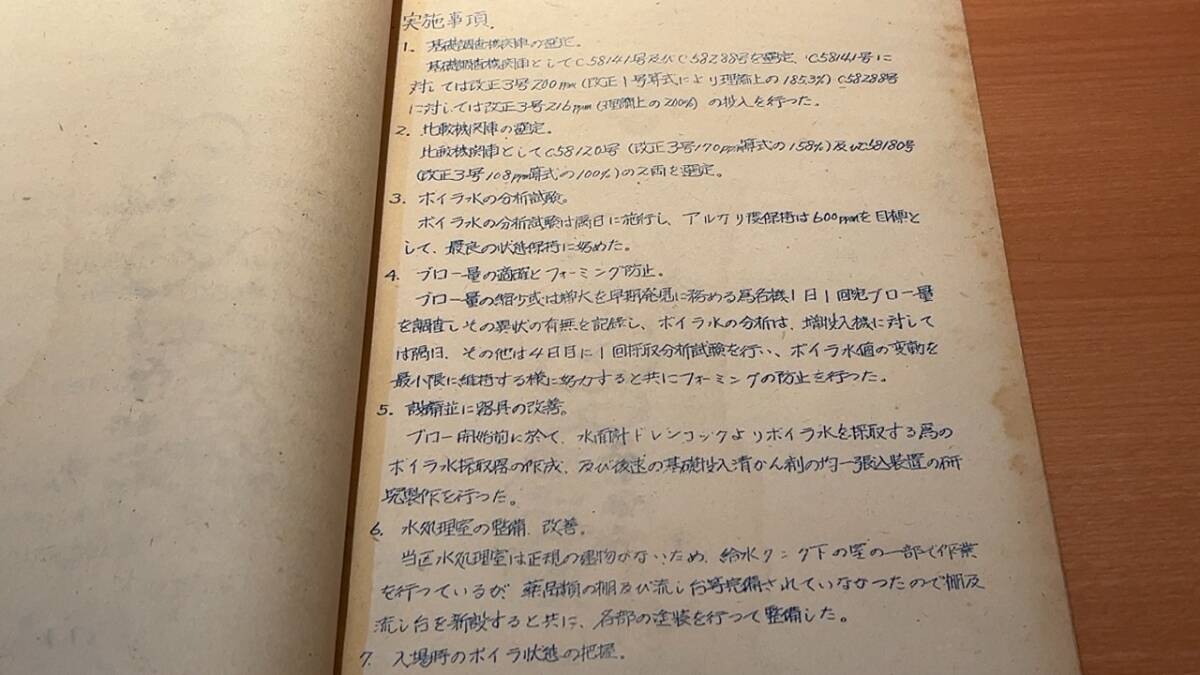 実施事項.
1. 基礎調査機関車の選定。
基礎調査機関車としてC58141号及びC58288号を選定、C58141号に
対しては改正3号200ppm(改正1号算式により理論上の185.3%)C58288号
に対しては改正3号216ppm(理論上の200%)の投入を行つた。
2. 比較機関車の選定。
比較機関車としてC58120号(改正3号170ppm算式の158%)及びC58180号
(改正3号108ppm算式の100%)の2両を選定。
3. ボイラ水の分析試験。
ボイラ水の分析試験は隔日に施行し、アルカリ度保持は600ppmを目標と
して、最良の状態保持に努めた。
4. ブロー量の適確とフォーミング防止。
ブロー量の縮少或は増大を早期発見に務める為各機1日1回宛ブロー量
を調査しその異状の有無を記録し、ボイラ水の分析は、増投入機に対して
は隔日、その他は4日目に1回採取分析試験を行い、ボイラ水値の変動を
最小限に維持する様に努力すると共にフォーミングの防止を行つた。
5. 設備並に器具の改善。
ブロー開始前に於て、水面計ドレンコックよりボイラ水を採取する為の
ボイラ水採取器の作成、及び後述の基礎投入清かん剤の均一張込装置の研
究製作を行つた。
6. 水処理室の整備、改善。
当区水処理室は正規の建物がないため、給水タンク下の室の一部で作業
を行つているが 薬品類の棚及び流し台等完備されていなかつたので棚及
流し台を新設すると共に、各部の塗装を行つて整備した。
7. 入場時のボイラ状態の把握。